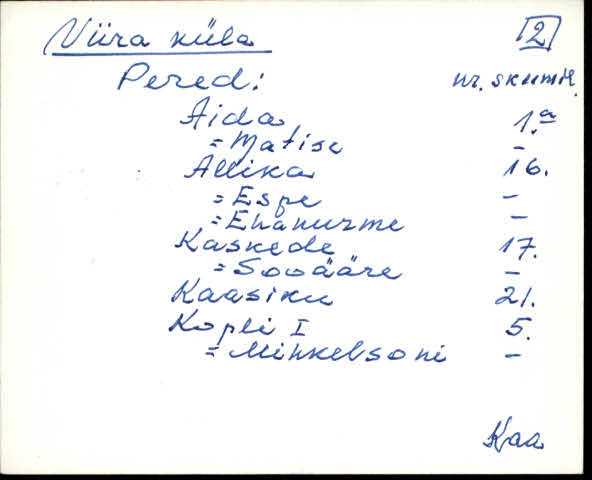 Viira küla 2
Pered: nr. skeemil.
Aida 1.a
= Matise -
Allika 16.
= Espe -
= Ehanurme -
Kaskede 17.
= Sooääre -
Kaasiku 21.
Kopli I 5.
= Mihkelsoni -
Kaa